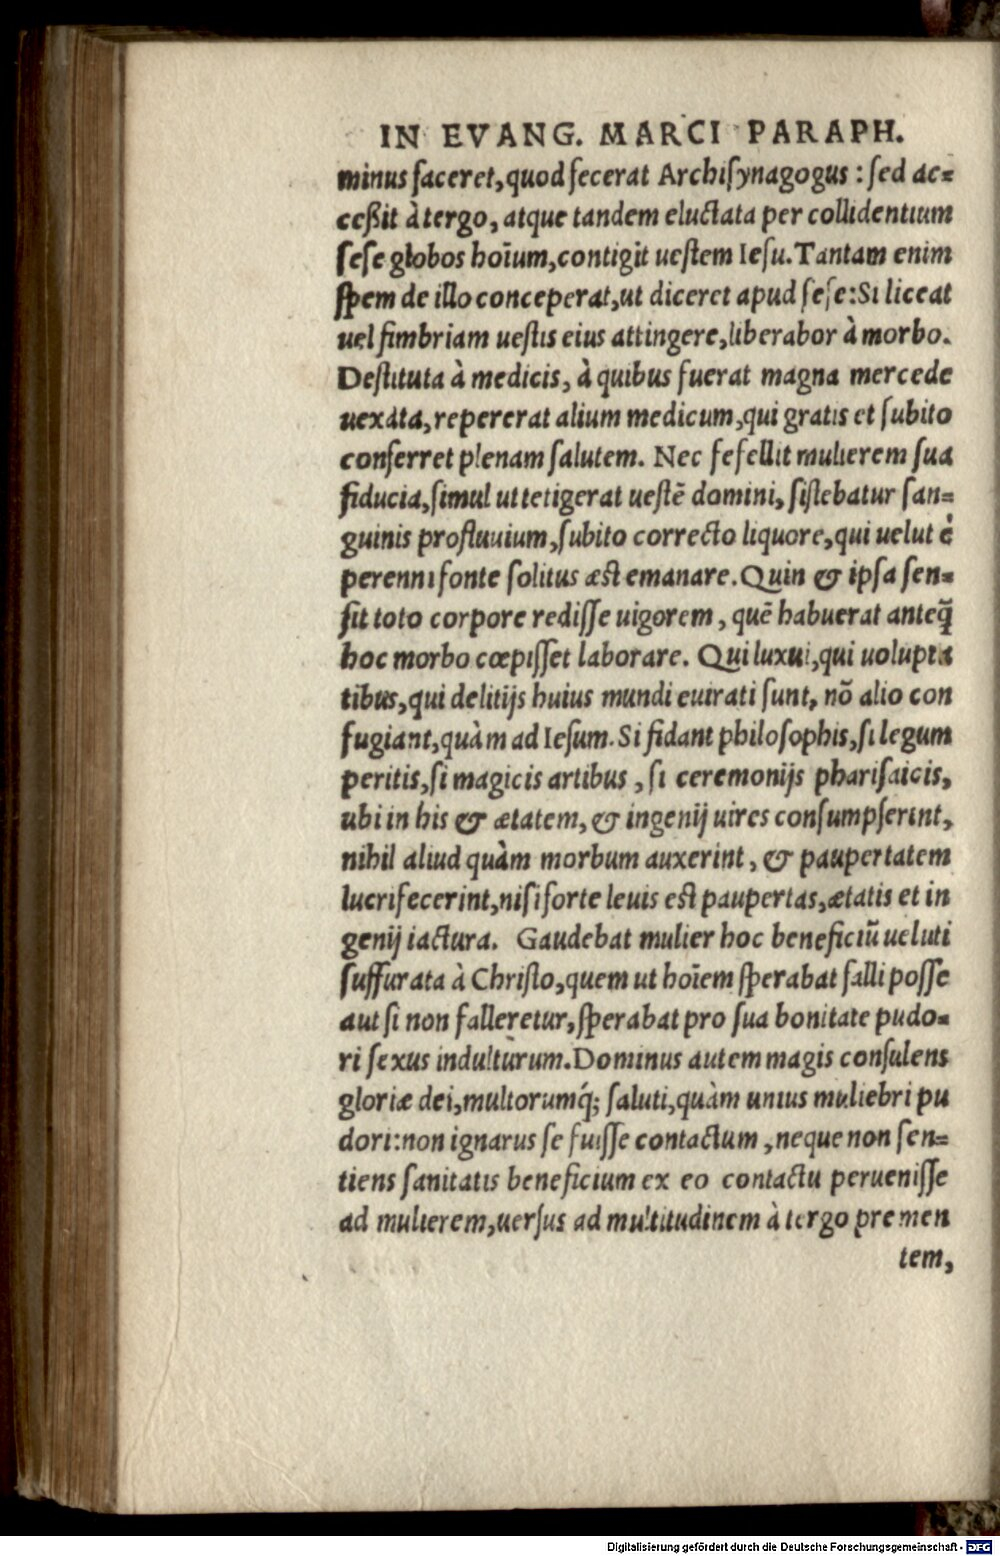 IN EVANG. MARCI PARAPH.
minus faceret, quod fecerat Archiſynagogus : ſed ac=
ceßit à tergo, atque tandem eluctata per collidentium
ſeſe globos hoīum, contigit ueſtem Ieſu. Tantam enim
ſpem de illo conceperat, ut diceret apud ſeſe: Si liceat
uel fimbriam ueſtis eius attingere, liberabor à morbo.
Deſtituta à medicis, à quibus fuerat magna mercede
uexata, repererat alium medicum, qui gratis et ſubito
conferret plenam ſalutem. Nec fefellit mulierem ſua
fiducia, ſimul ut tetigerat ueſtē domini, ſiſtebatur ſan=
guinis profluuium, ſubito correcto liquore, qui uelut è
perenni fonte ſolitus æſt emanare. Quin & ipſa ſen=
ſit toto corpore rediſſe uigorem, quē habuerat anteq̃
hoc morbo cœpiſſet laborare. Qui luxui, qui uolupta
tibus, qui delitijs huius mundi euirati ſunt, nō alio con
fugiant, quàm ad Ieſum. Si fidant philoſophis, ſi legum
peritis, ſi magicis artibus, ſi ceremonijs phariſaicis,
ubi in his & ætatem, & ingenij uires conſumpſerint,
nihil aliud quàm morbum auxerint, & paupertatem
lucrifecerint, niſi forte leuis eſt paupertas, ætatis et in
genij iactura. Gaudebat mulier hoc beneficiū ueluti
ſuffurata à Chriſto, quem ut hoīem ſperabat falli poſſe
aut ſi non falleretur, ſperabat pro ſua bonitate pudo=
ri ſexus indulturum. Dominus autem magis conſulens
gloriæ dei, multorumq́; ſaluti, quàm unius muliebri pu
dori: non ignarus ſe fuiſſe contactum, neque non ſen=
tiens ſanitatis beneficium ex eo contactu perueniſſe
ad mulierem, uerſus ad multitudinem à tergo premen
tem,
Digitalisierung gefördert durch die Deutsche Forschungsgemeinschaft - DFG